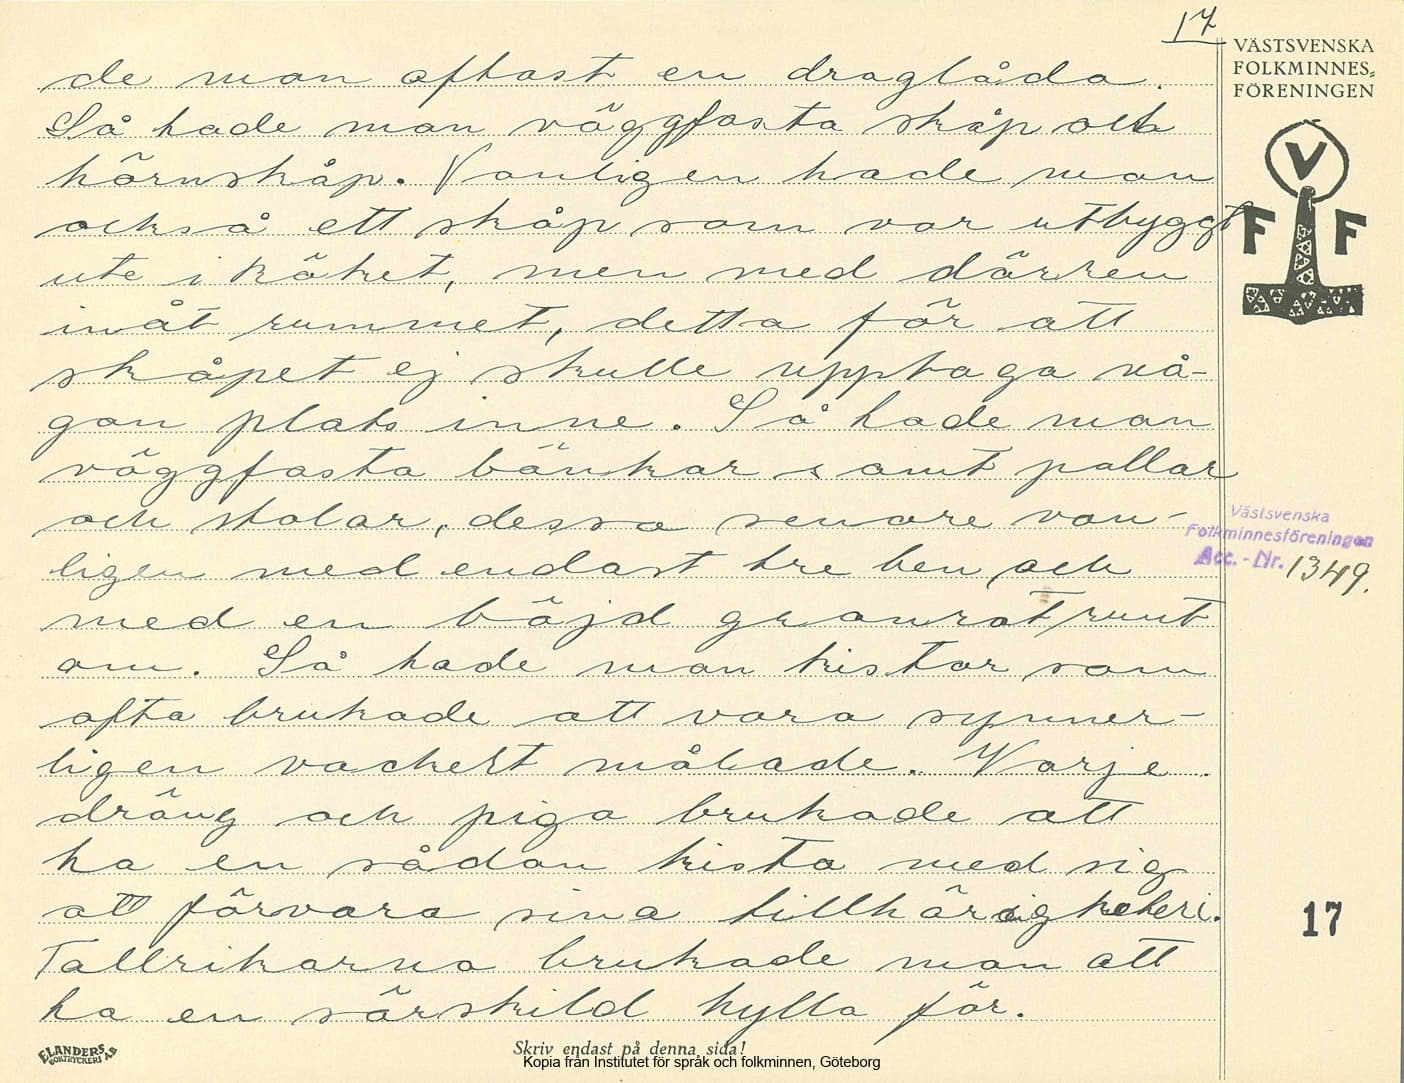 17
VÄSTSVENSKA
FOLKMINNES-
FÖRENINGEN
V
F F
de man oftast en draglåda.
Så hade man väggfasta skåp och
hörnskåp. Vanligen hade man
också ett skåp som var utbyggt
ute i köket, men med dörren
inåt rummet, detta för att
skåpet ej skulle upptaga nå-
gon plats inne. Så hade man
väggfasta bänkar samt pallar
och stolar, dessa senare van-
ligen med endast tre ben och
med en böjd granrot runt
om. Så hade man kistor som
ofta brukade att vara synner-
ligen vackert målade. Varje
dräng och piga brukade att
ha en sådan kista med sig
att förvara sina tillhörigheter i.
Tallrikarna brukade man att
ha en särskild hylla för.
Västsvenska
Folkminnesföreningen
Acc. - Nr. 1349.
17
ELANDERS
BOKTRYCKERI AB
Skriv endast på denna sida!
Kopia från Institutet för språk och folkminnen, Göteborg